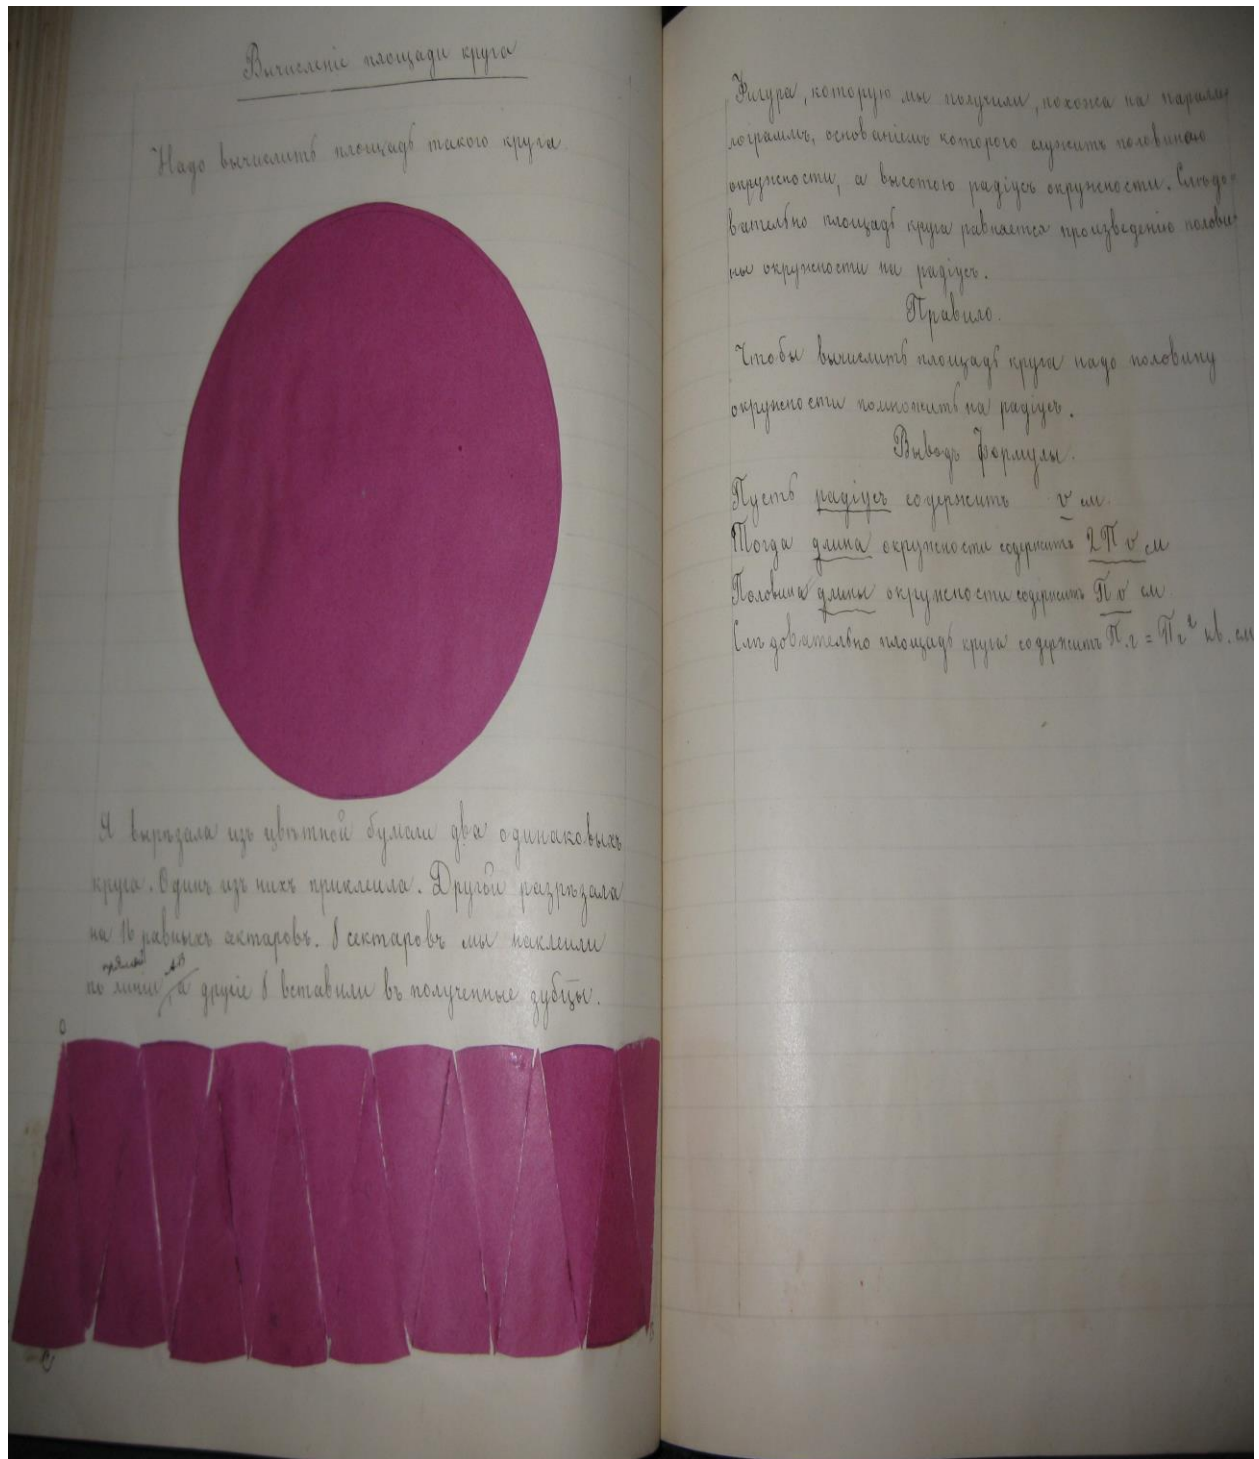 Вычисленіе площади круга
Надо вычислить площадь такого круга
Я вырѣзала изъ цвѣтной бумаги два одинаковыхъ
круга. Одинъ изъ нихъ приклеила. Другой разрѣзала
на 16 равныхъ сектаровъ. 8 сектаровъ мы наклеили
прямой АВ
по линіи, а другіе 8 вставили въ полученные зубцы.
О
Фигура, которую мы получили, похожа на паралле
лограммъ, основаніемъ которого служитъ половиною
окружности, а высотою радіусъ окружности. Слѣдо=
вательно площадь круга равняется произведенію полови
ны окружности на радіусъ.
Правило.
Чтобы вычислить площадь круга надо половину
окружности помножить на радіусъ.
Выводъ формулы.
Пусть радіусъ содержитъ r см.
Тогда длина окружности содержитъ 2Пr см
Половина длины окружности содержитъ Пr см
Слѣдовательно площадь круга содержитъ П.r = Пr² кв. см